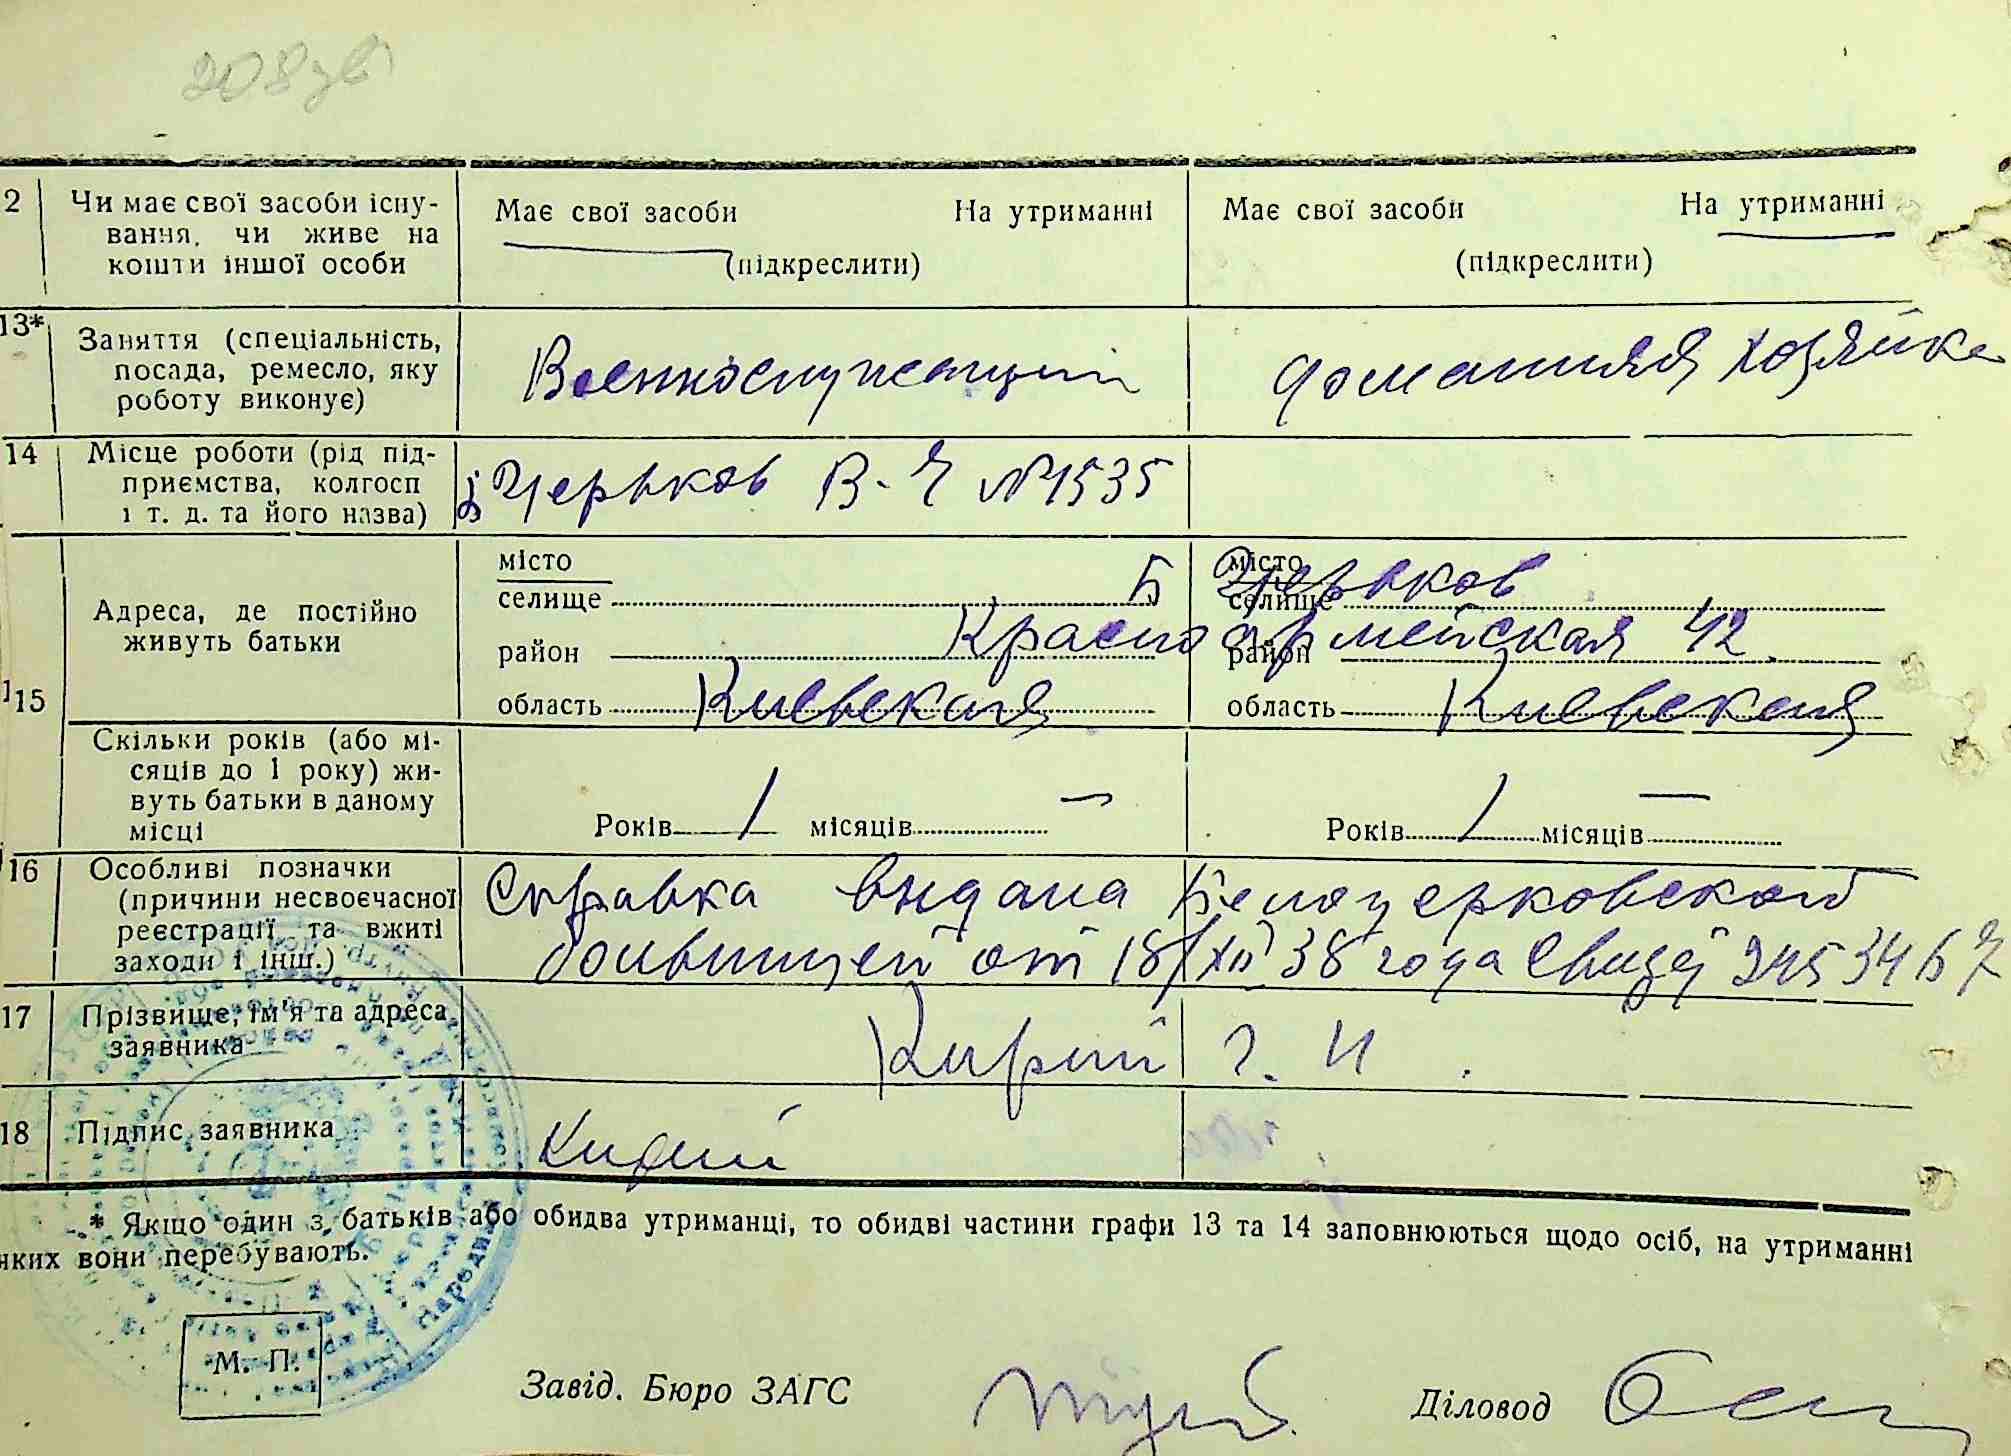 208
2 Чи має свої засоби існу- Має свої засоби На утриманні Має свої засоби На утриманні
вання, чи живе на
кошти іншої особи (підкреслити) (підкреслити)
13* Заняття (спеціальність,
посада, ремесло, яку Военнослужащий домашняя хозяйка
роботу виконує)
14 Місце роботи (рід під-
приємства, колгосп Б Церьков В-Ч №1535
і т. д. та його назва)
місто місто
селище Б Церьков селище
Адреса, де постійно
живуть батьки
район Красноармейская 42 район
15 область Киевская область Киевская
Скільки років (або мі-
сяців до 1 року) жи-
вуть батьки в даному
місці Років 1 місяців — Років 1 місяців —
16 Особливі позначки
(причини несвоєчасної Справка выдана Белоцерковской
реєстрації та вжиті
заходи і інш.) больницей от 18/XII 38 года
17 Прізвище, ім'я та адреса
заявника Кирий Г. И.
18 Підпис заявника Кирий
* Якщо один з батьків або обидва утриманці, то обидві частини графи 13 та 14 заповнюються щодо осіб, на утриманні
яких вони перебувають.
М. П.
Завід. Бюро ЗАГС Діловод